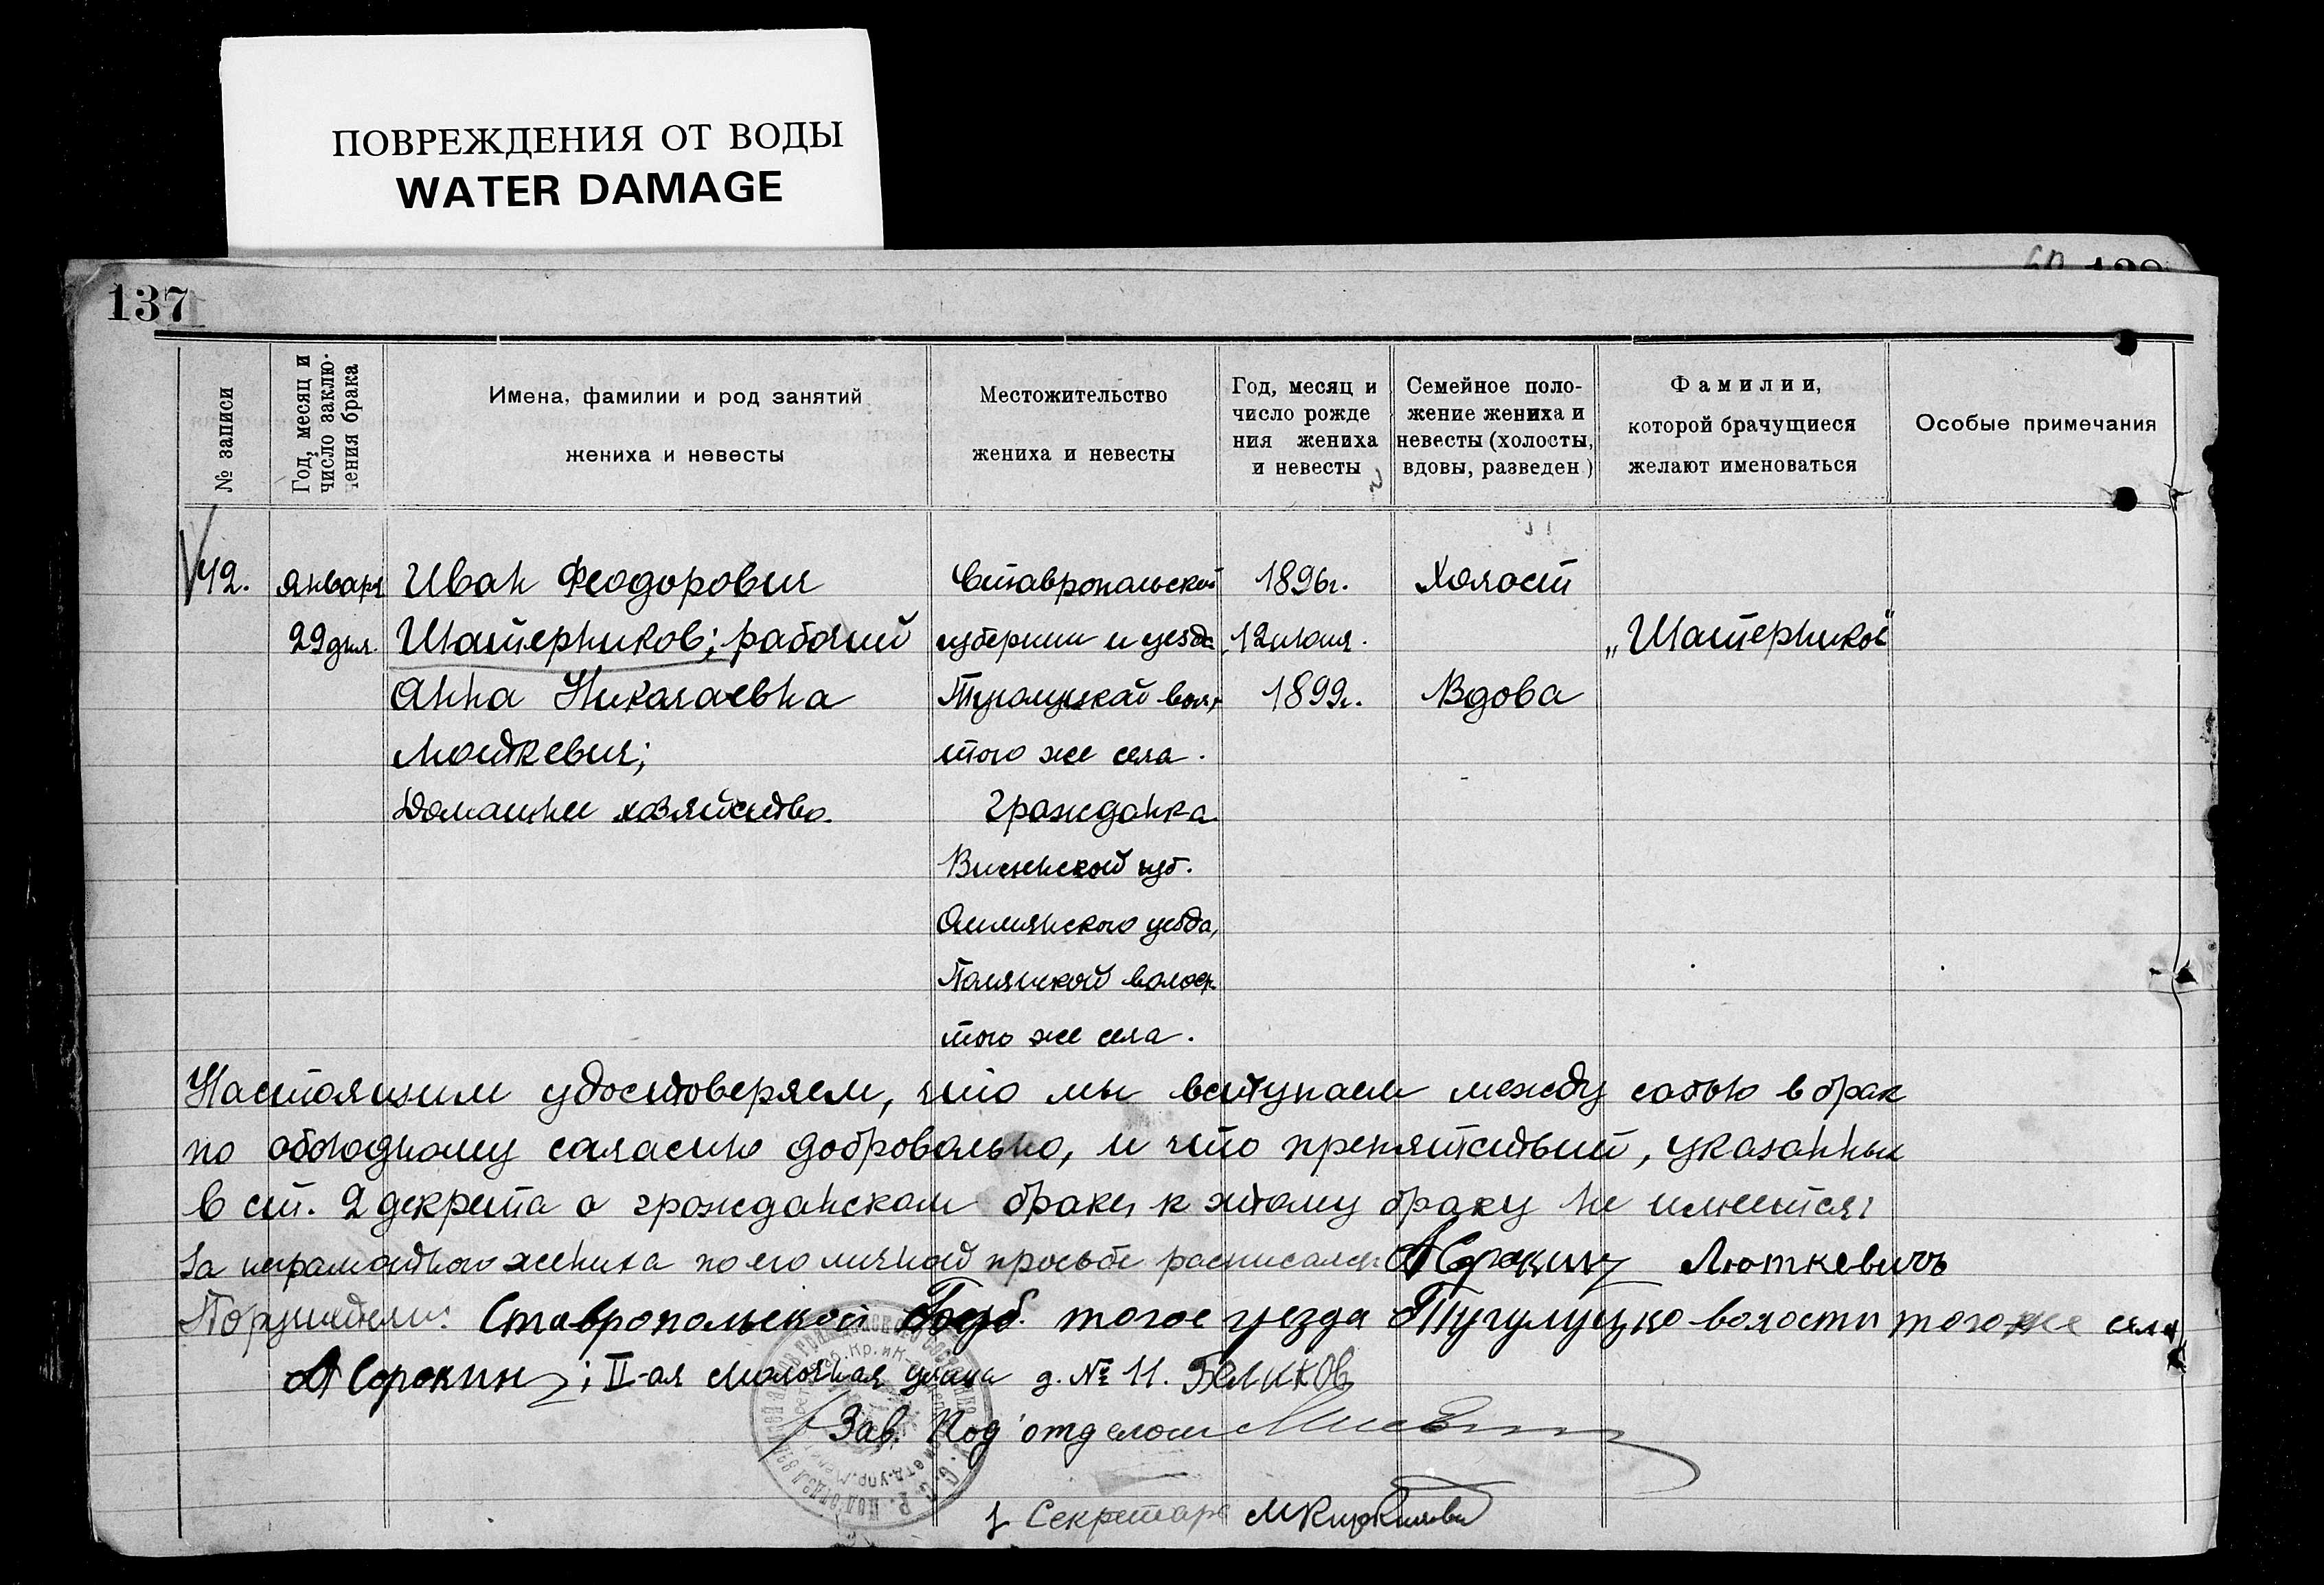 ПОВРЕЖДЕНИЯ ОТ ВОДЫ
WATER DAMAGE
137
№ записи
Год, месяц и число заклю-
чения брака
Имена, фамилии и род занятий
жениха и невесты
Местожительство
жениха и невесты
Год, месяц и
число рожде
ния жениха
и невесты
Семейное поло-
жение жениха и
невесты (холосты,
вдовы, разведен)
Фамилии,
которой брачущиеся
желают именоваться
Особые примечания
42. Января Иван Феодорович Ставропольской 1896г. Холост
29 дня. Шатерников; рабочий губернии и уезда, 12 июля. „Шатерников"
Анна Николаевна Тугулуцкой вол, 1899г. Вдова
Люткевич; того же села.
Домашнее хозяйство. гражданка
Виленской губ.
Ошмянского уезда,
Полянской волос.
того же села.
Настоящим удостоверяем, что мы вступаем между собою в брак
по обоюдному согласию добровольно, и что препятствий, указанных
в ст. 2 декрета о гражданском браке, к этому браку не имеется:
За неграмотного жениха по его личной просьбе расписался: АСорокин Люткевичъ
Поручители: Ставропольской Губ. тогое уезда Тугулуцко волости того же села
А Сорокин; II-ая Молочная улица д. № 11. Беликов
Зав. Под'отделом
Секретарь